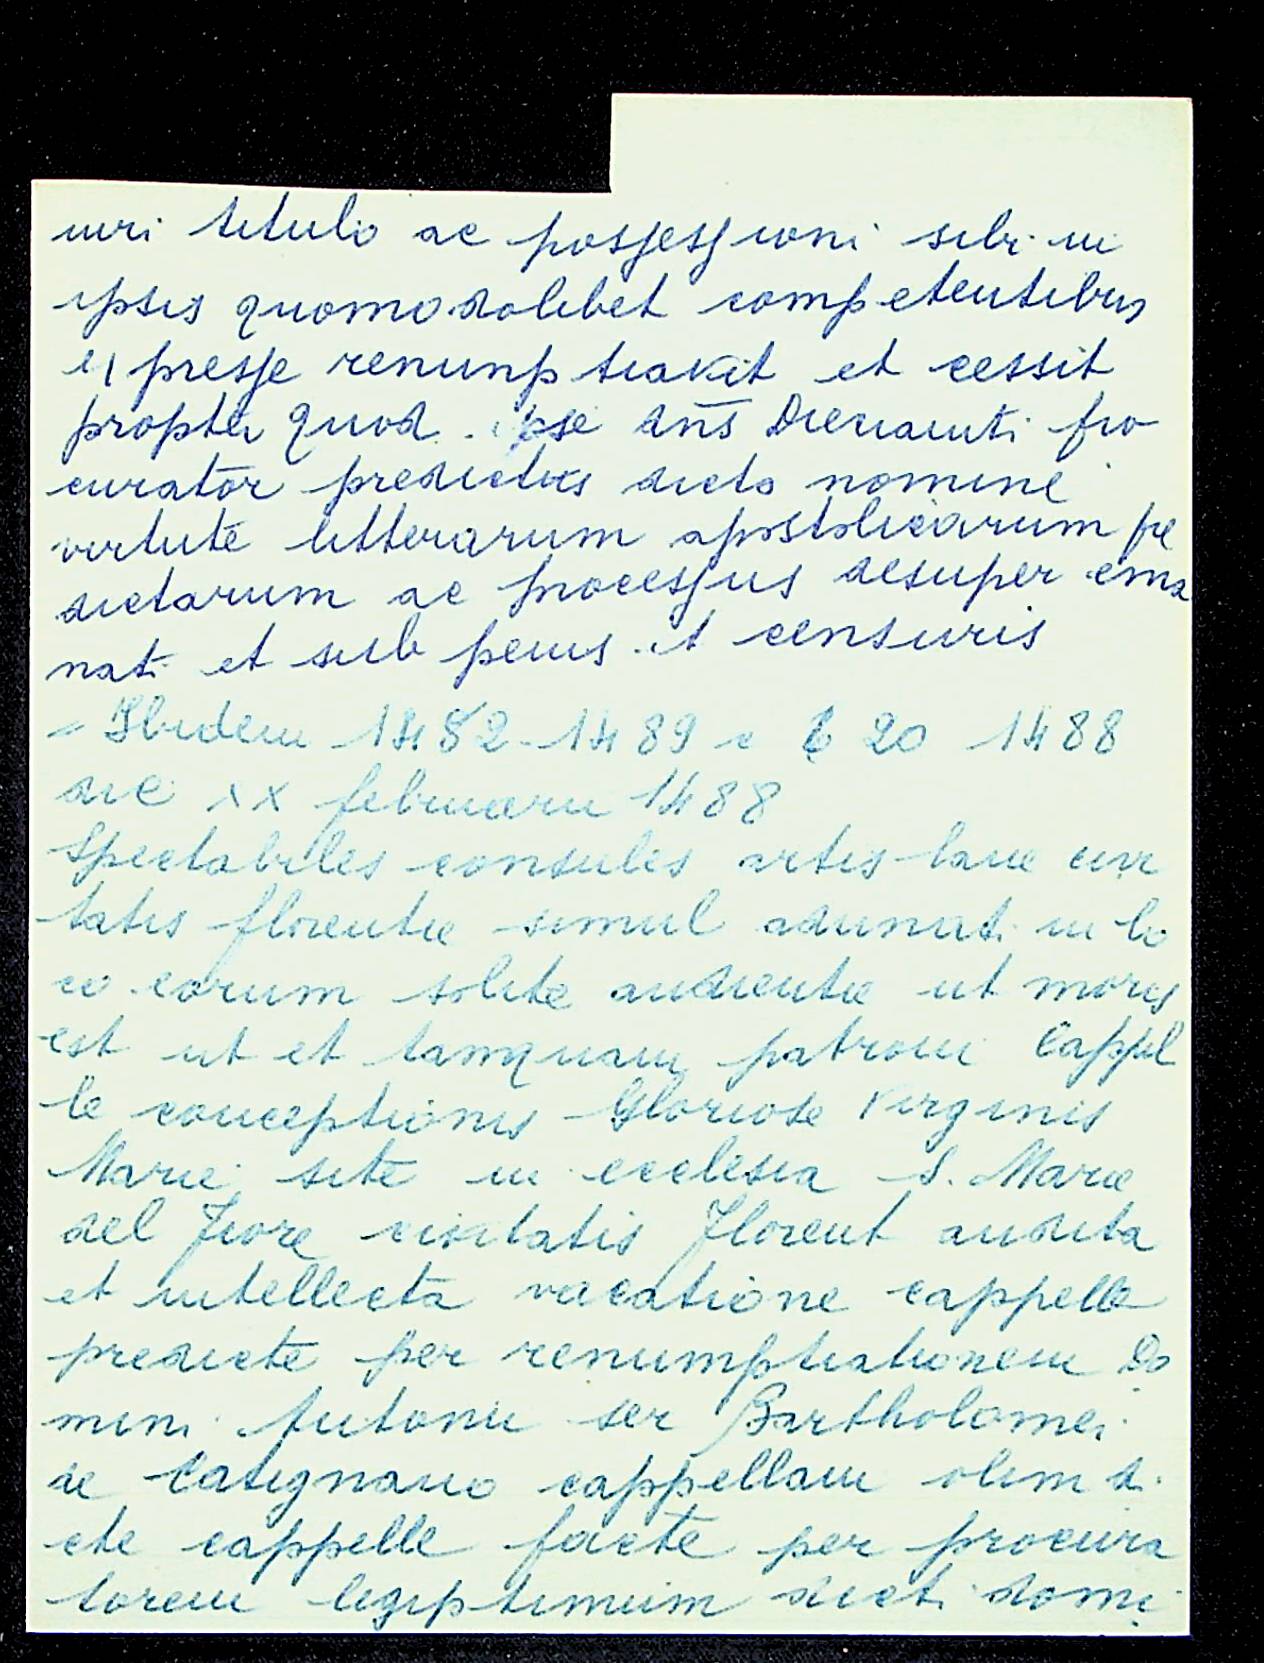 iuri titulo ac possessioni sibi in
ipsis quomodolibet competentibus
expresse renunptiavit et cessit
propter quod ipse dn̄s Dieciaiuti pro
curator predictus dicto nomine
virtute litterarum apostolicarum pre
dictarum ac processus desuper ema
nati et sub penis et censuris
- Ibidem 1482-1489 c 20 1488
die xx februarii 1488
Spectabiles consules artis lane civi
tatis florentie simul adunati in lo
co eorum solite audientie ut moris
est ut et tamquam patroni Cappel
le conceptionis Gloriose Virginis
Marie site in ecclesia S. Marie
del Fiore civitatis Florent audita
et intellecta vacatione cappelle
predicte per renumptiationem Do
mini Antonii ser Bartholomei
de Catignano cappellani olim di
cte cappelle facte per procura
torem legiptimum dicti domi